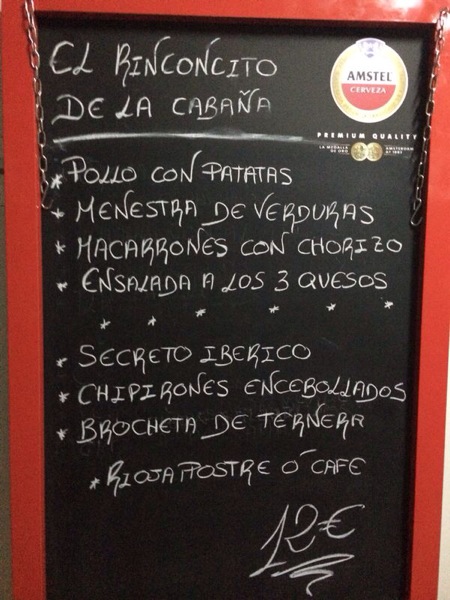 EL RINCONCITO
DE LA CABAÑA
AMSTEL
CERVEZA
PREMIUM QUALITY
LA MEDALLE
DE ORO
AMSTERDAM
* POLLO CON PATATAS
* MENESTRA DE VERDURAS
* MACARRONES CON CHORIZO
* ENSALADA A LOS 3 QUESOS
* * * * * *
* SECRETO IBERICO
* CHIPIRONES ENCEBOLLADOS
* BROCHETA DE TERNERA
* RIOJA POSTRE Ó CAFE
12€